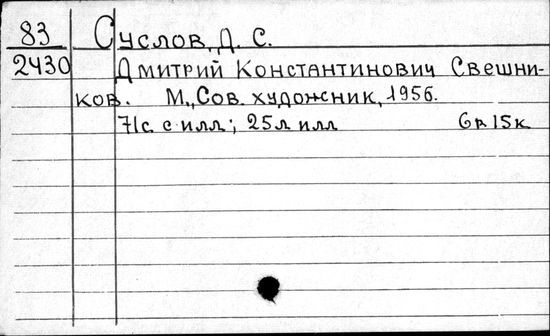 83 Суслов, Д. С.
2430 Дмитрий Константинович Свешни-
ков. М., Сов. художник, 1956.
71с. с илл; 25л илл 6р 15к